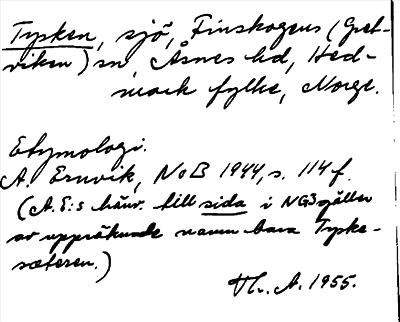 Tysken, sjö, Finskogens (Gret-
viken) sn, Åsnes hd, Hed-
mark fylke, Norge.
Etymologi.
A. Ernvik, NoB 1944, s. 114 f.
(A. E:s hänv. till sida i NG3 gäller
av uppräknade namn bara Tyske-
sæteren.)
Th. A. 1955.